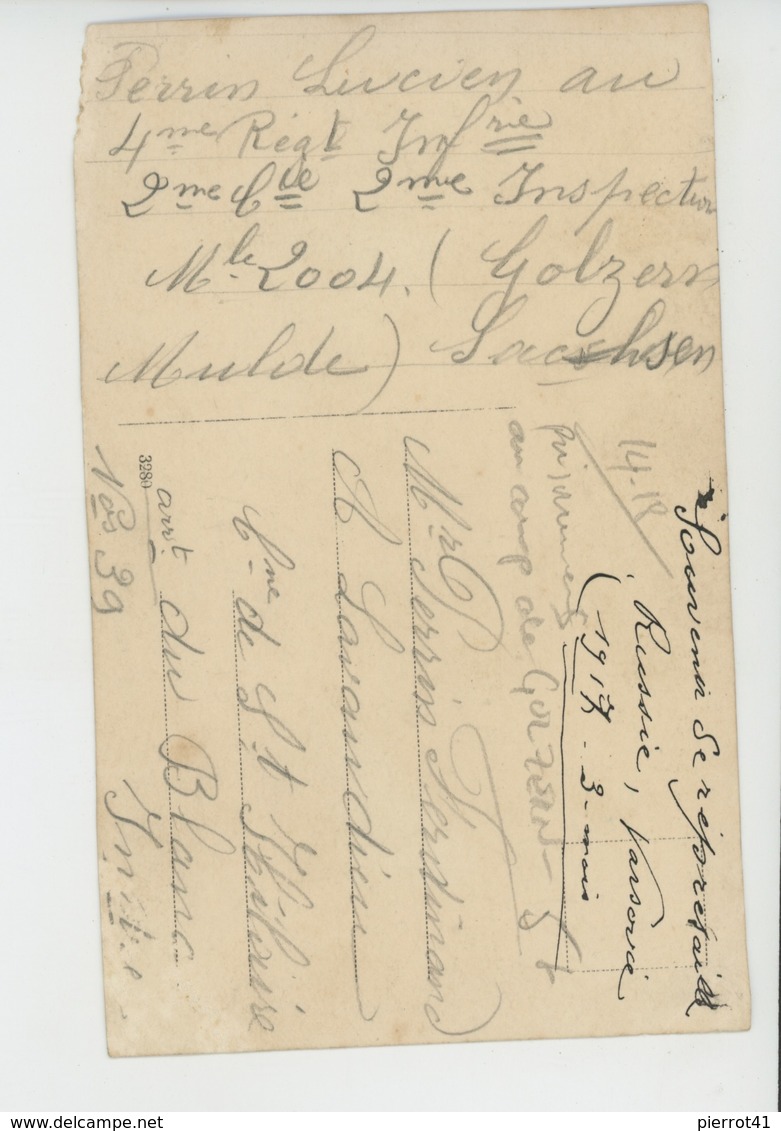 Perrin Lucien au
4me Régt Infrie
2me Cie 2me Inspection
Mle 2004. (Golzern
Mulde) Sachsen
Souvenir de
Russie, Varsovie
(1917 - 3 mois
14-18
prisonniers
au camp de
Mr Perrin Ferdinand
A Lavaudieu
Cne de St Hilaire
arrt du Blanc
Indre
Nos 39
3280
pierrot41